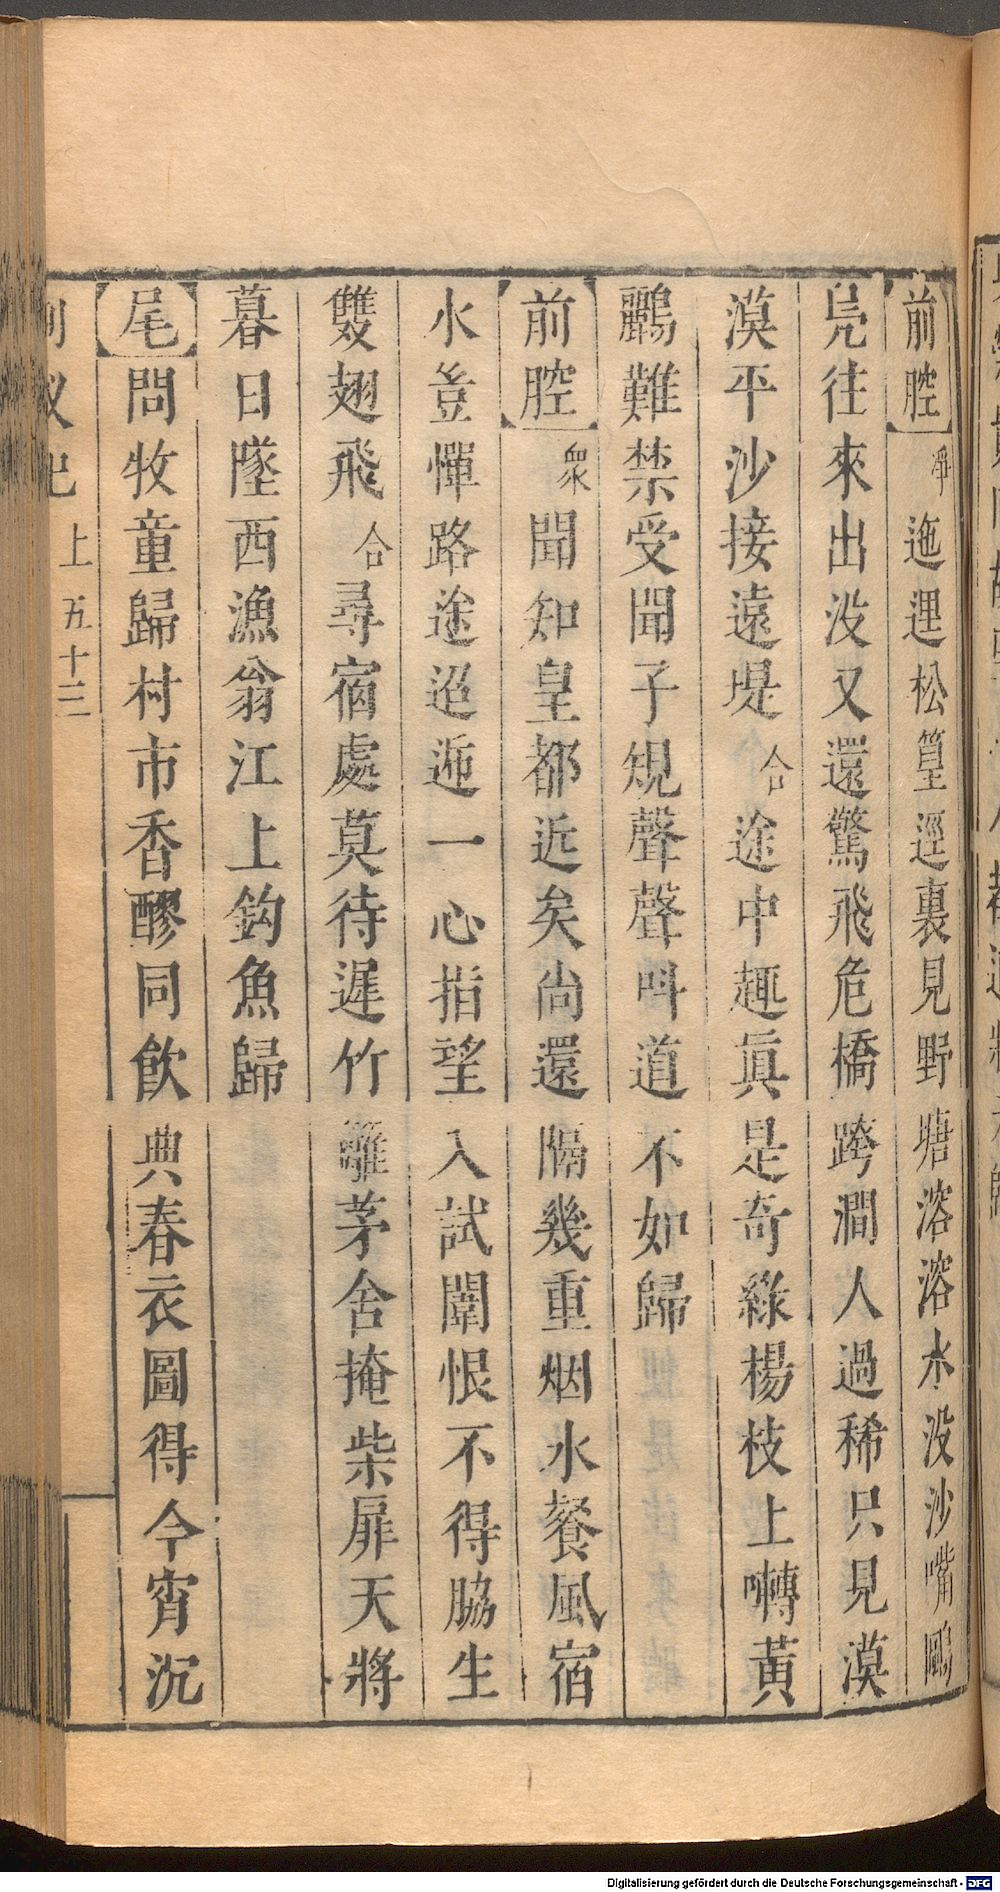 前腔淨迤逦松篁逕裏見野塘溶溶水没沙嘴鷗
凫往來出没又還驚飛危橋跨澗人過稀只見漠
漠平沙接遠堤合途中趣眞是奇綠楊枝上囀黃
鸝難禁受聞子規聲聲呌道不如歸
前腔衆聞知皇都近矣尙還隔幾重烟水餐風宿
水豈憚路途迢遞一心指望入試闈恨不得脇生
雙翅飛合尋宿處莫待遲竹籬茅舍掩柴扉天將
暮日墜西漁翁江上鈎魚歸
尾問牧童歸村市香醪同飲典春衣圖得今宵沉
上五十三
Digitalisierung gefördert durch die Deutsche Forschungsgemeinschaft - DFG